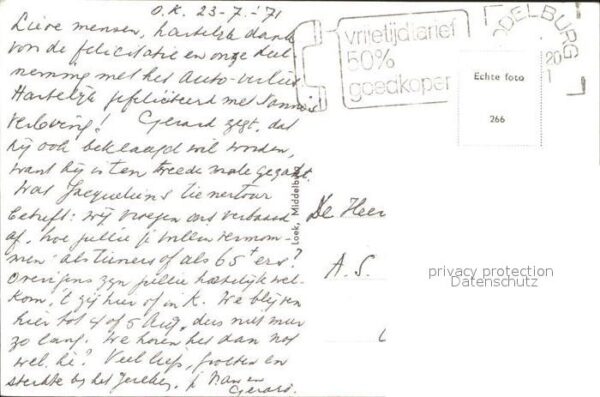 O.K. 23-7-'71
Lieve mensen, hartelijk dank
voor de felicitatie en onze deel
neming met het Auto-verlies
Hartelijk gefeliciteerd met Jannie's
verloving! Gerard zegt, dat
hij ook beklaagd wil worden,
want hij is ten tweede male gezakt.
Wat Jacquelien's tienertour
betreft: wij vroegen ons verbaasd
af, hoe jullie je willen vermom-
men: als tieners of als 65+ers?
Overigens zijn jullie hartelijk wel-
kom, 't zij hier of in K. We blijven
hier tot 4 of 5 Aug, dus niet meer
zo lang. We horen het dan nog
wel, hè? Veel liefs, groeten en
sterkte bij het
Nan en
Gerard.
vrijetijdtarief
50%
goedkoper
MIDDELBURG
20
1
Echte foto
266
Loek, Middelburg
De Heer
A.S.
privacy protection
Datenschutz